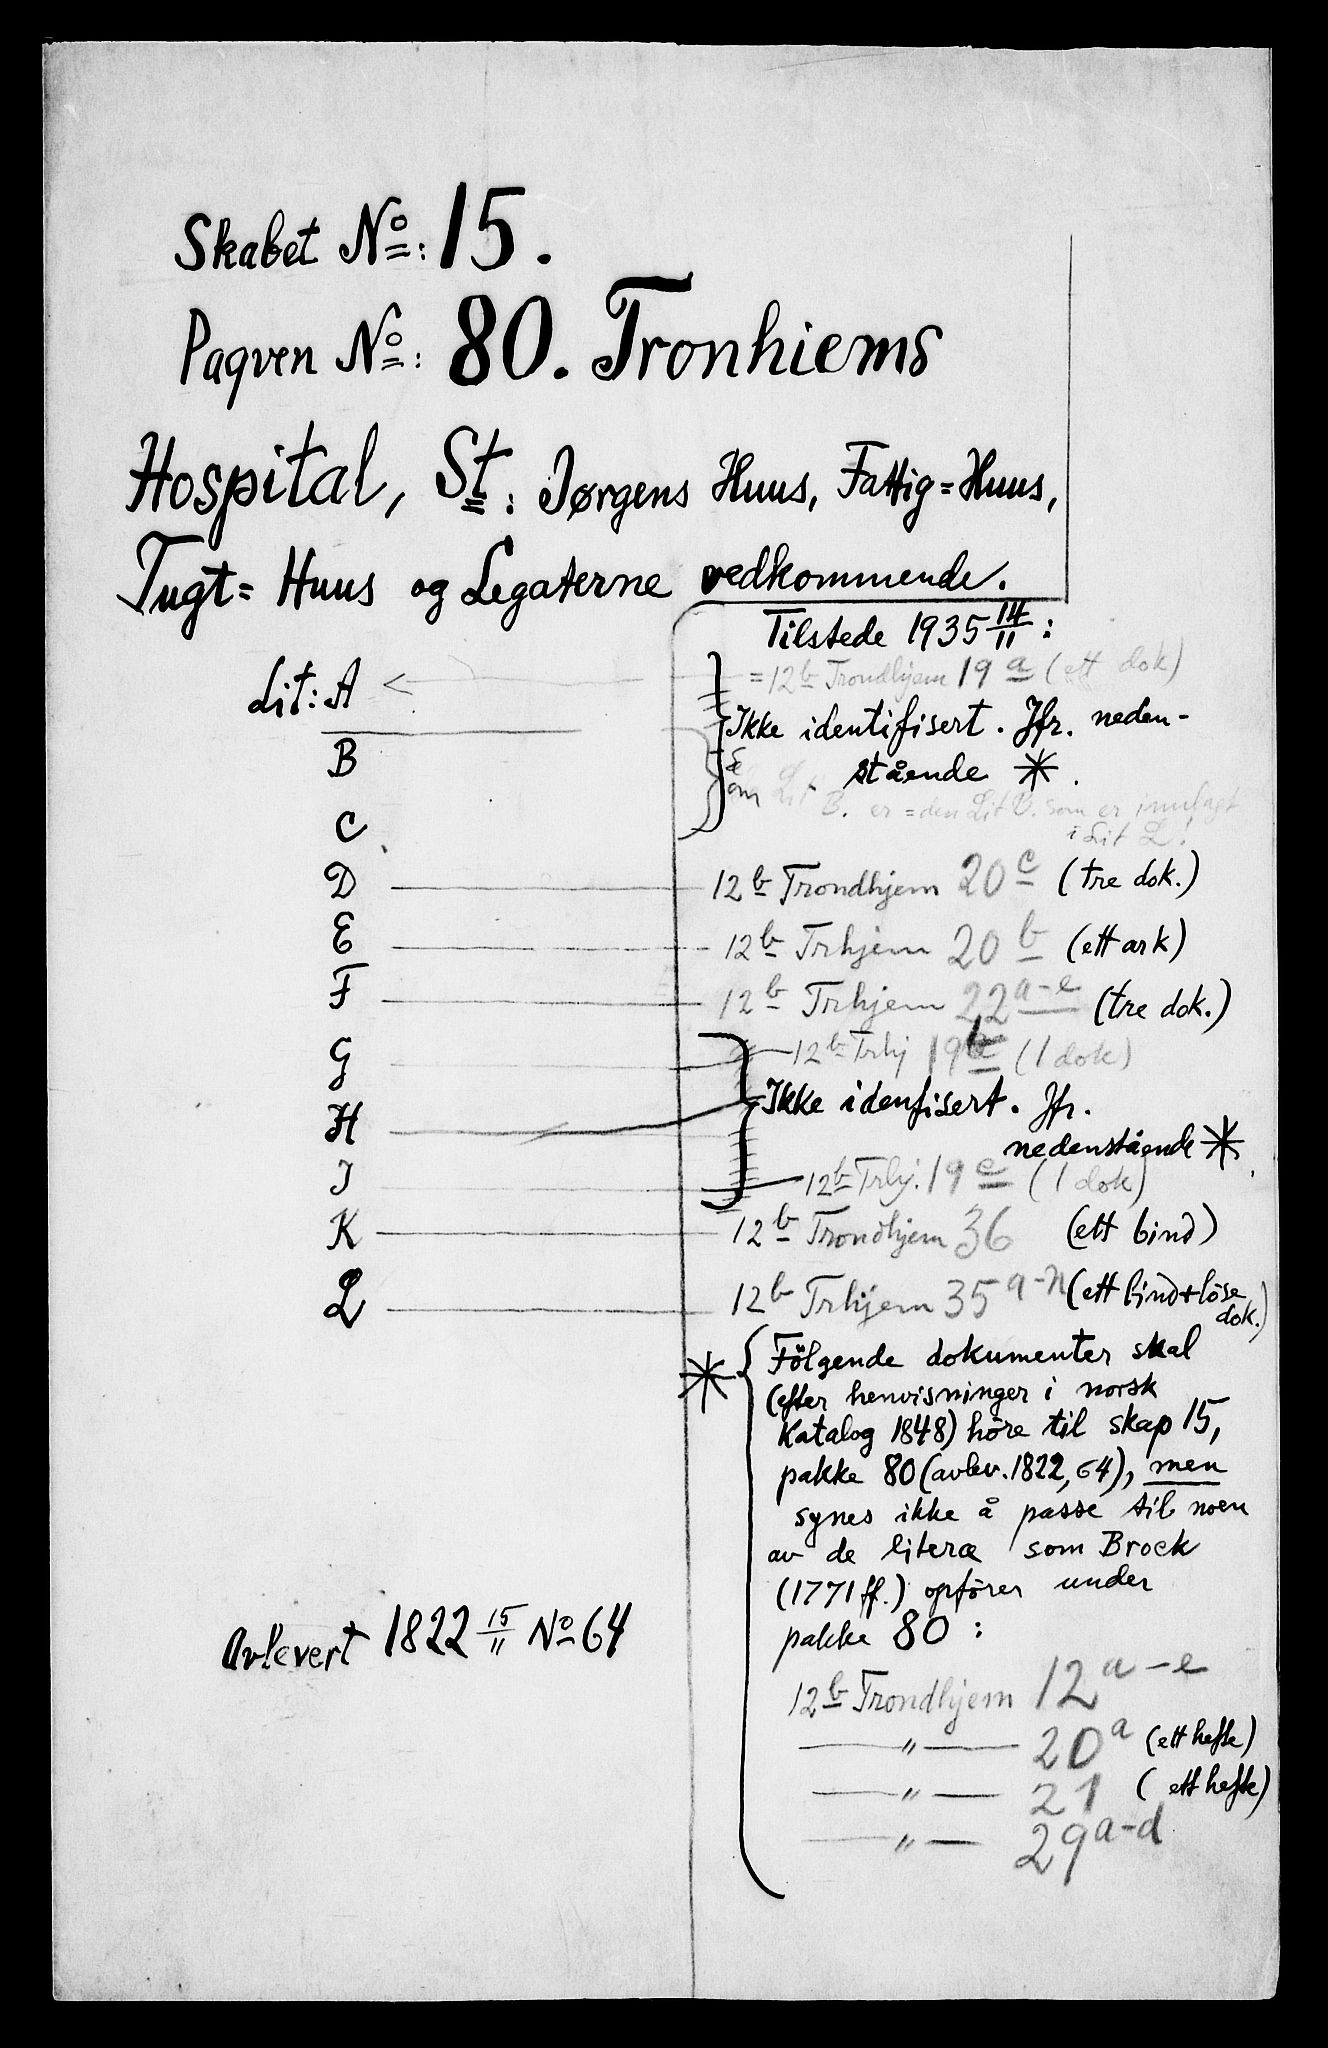 Skabet No: 15.
Paqven No: 80. Tronhiems
Hospital, St: Jørgens Huus, Fattig=Huus,
Tugt= Huus og Legaterne vedkommende.
Tilstede 1935 14/11:
Lit: A = 12b Trondhjem 19 a (ett dok)
Ikke identifisert. Jfr. neden-
stående *.
B
Lit B. er = den Lit B. som er innlagt
i Lit L!
C
D 12b Trondhjem 20 c (tre dok.)
E 12b Trhjem 20 b (ett ark)
F 12b Trhjem 22 a-e (tre dok.)
G 12b Trhj 19 b (1 dok)
Ikke idenfisert. Jfr.
H
nedenstående *
I 12b Trhj. 19 c (1 dok)
K 12b Trondhjem 36 (ett bind)
L 12b Trhjem 35 a-n (ett bind + löse
dok.)
* Fölgende dokumenter skal
(efter henvisninger i norsk
Katalog 1848) höre til skap 15,
pakke 80 (avlev. 1822, 64), men
synes ikke å passe til noen
av de literæ som Brock
(1771 ff.) opförer under
pakke 80:
Avlevert 1822 15/11 No 64
12b Trondhjem 12 a-e
—〃— 20 a (ett hefte)
—〃— 21 (ett hefte)
—〃— 29 a-d